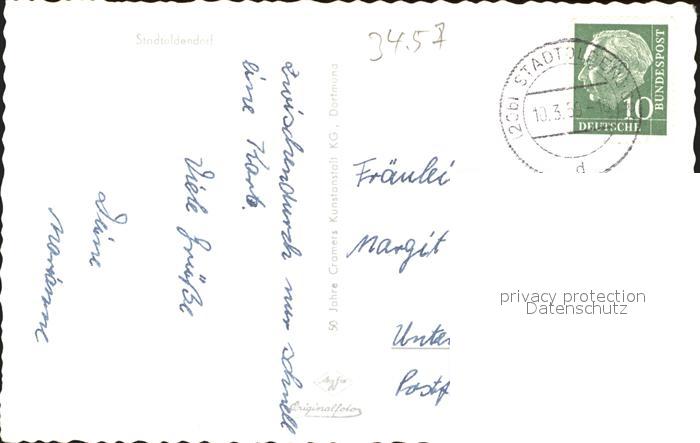 Stadtoldendorf
34.57
zwischendurch nur schnell
eine Karte.
Viele Grüße
Deine
Marianne
50 Jahre Cramers Kunstanstalt KG, Dortmund
Agfa
Originalfoto
(20b) STADTOLDEN
10.3.
d
10
DEUTSCHE
BUNDESPOST
Fräulei
Margit
Unter
Postf
privacy protection
Datenschutz